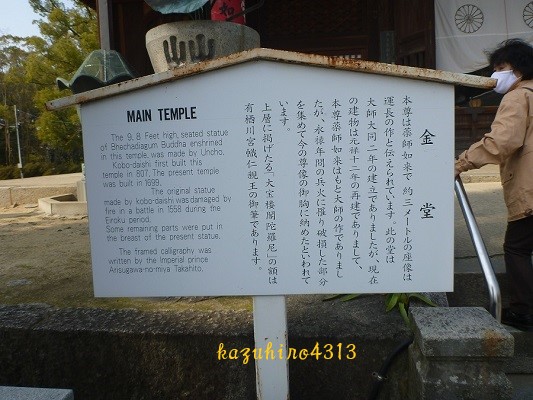 MAIN TEMPLE
The 9, 8 Feet high, seated statue
of Bhechadiagum Buddha enshrined
in this temple, was made by Unoho.
Kobo-daishi first built this
temple in 807. The present temple
was built in 1699.
The original statue
made by kobo-daish was damaged by
fire in a battle in 1558 during the
Eiroku period.
Some remaining parts were put in
the breast of the present statue.
The framed calligraphy was
written by the Imperial prince
Arisugawa-no-miya Takahito.
金堂
本尊は薬師如来で約三メートルの座像は
運長の作と伝えられています。此の堂は
大師大同二年の建立でありましたが、現在
の建物は元禄十二年の再建でありまして、
本尊薬師如来はもと大師の作でありまし
たが、永禄年間の兵火に罹り破損した部分
を集めて今の尊像の御胸に納めたといわれて
います。
上層に掲げたる「大宝楼閣陀羅尼」の額は
有栖川宮幟仁親王の御筆であります。
kazuhiro4313